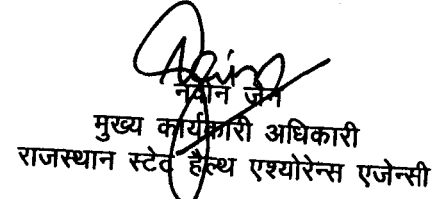 नवीन जैन
मुख्य कार्यकारी अधिकारी
राजस्थान स्टेट हैल्थ एश्योरेन्स एजेन्सी